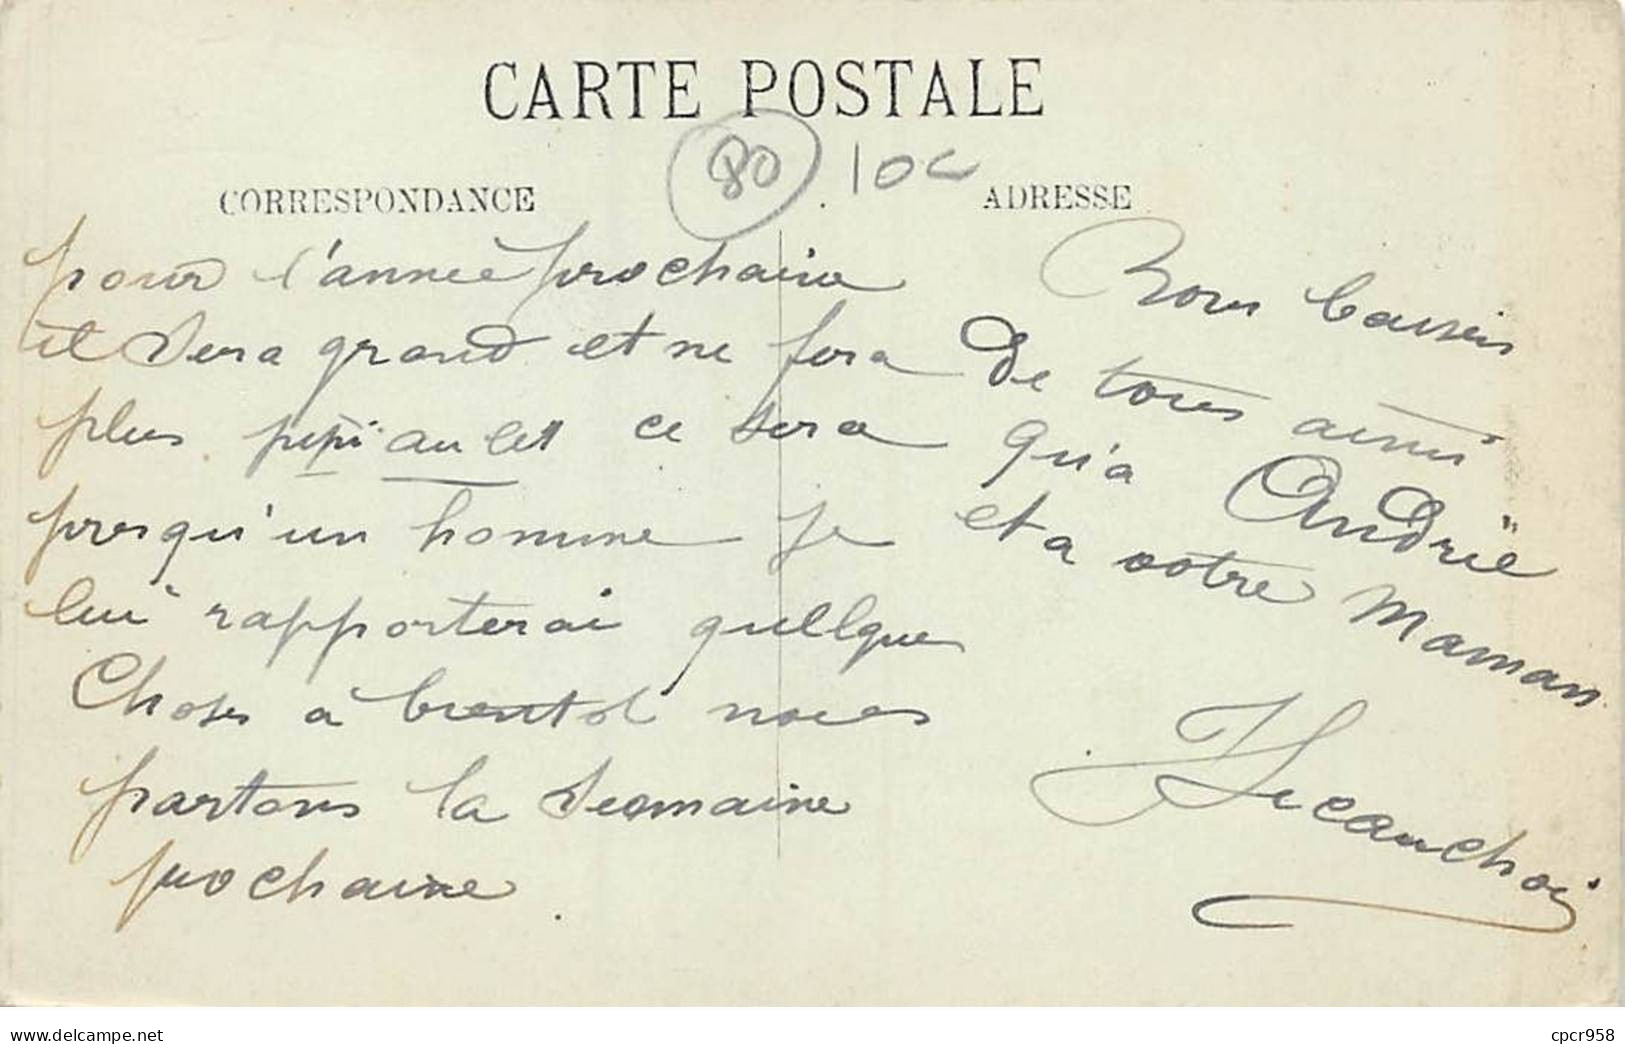 CARTE POSTALE
80 10c
CORRESPONDANCE
ADRESSE
pour l'année prochaine
il sera grand et ne fera
plus pipi au lit ce sera
presqu'un homme je
lui rapporterai quellques
Choses à bientot nous
partons la semaine
prochaine
Bons baisers
de tous ainsi
qu'a Andrée
et a votre Maman
www.delcampe.net
cpcr958